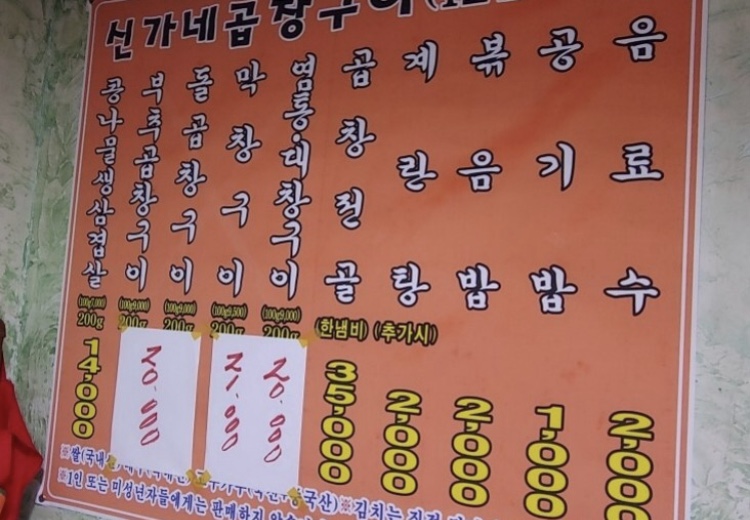 신가네곱창구이
콩나물생삼겹살
(100g7,000)
200g
14,000
부추곱창구이
(100g9,000)
200g
20.000
돌곱창구이
(100g9,000)
200g
막창구이
(100g9,500)
200g
21.000
염통·대창구이
(100g9,000)
200g
20.000
곱창전골
(한냄비)
35,000
계란탕
(추가시)
2,000
볶음밥
2,000
공기밥
1,000
음료수
2,000
※쌀(국내산)
국산) ※김치는
※1인 또는 미성년자들에게는 판매하지